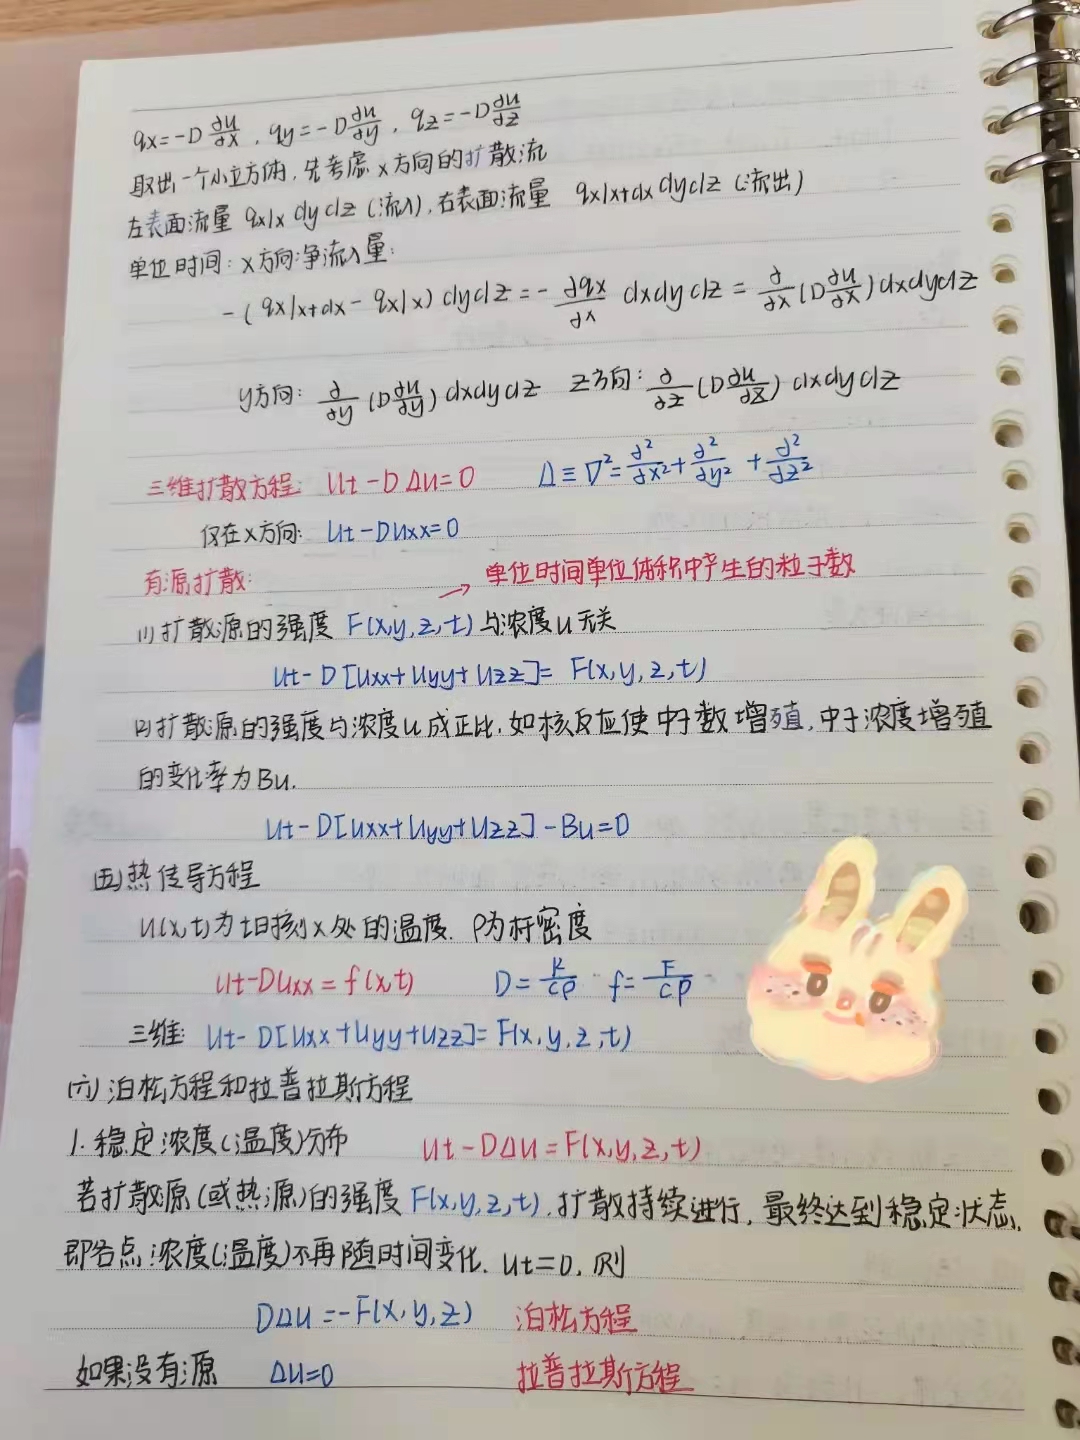 qx=-D ∂u/∂x, qy=-D ∂u/∂y, qz=-D ∂u/∂z
取出一个小立方体,先考虑x方向的扩散流
左表面流量 qx|x dydz (流入),右表面流量 qx|x+dx dydz (流出)
单位时间:x方向净流入量:
-(qx|x+dx - qx|x) dydz = - ∂qx/∂x dxdydz = ∂/∂x (D ∂u/∂x) dxdydz
y方向: ∂/∂y (D ∂u/∂y) dxdydz z方向: ∂/∂z (D ∂u/∂z) dxdydz
三维扩散方程: Ut-DΔu=0 Δ≡∇²=∂²/∂x²+∂²/∂y²+∂²/∂z²
仅在x方向: Ut-Duxx=0
有源扩散: → 单位时间单位体积中产生的粒子数
(1)扩散源的强度 F(x,y,z,t)与浓度u无关
Ut-D[Uxx+Uyy+Uzz]= F(x,y,z,t)
(2)扩散源的强度与浓度u成正比.如核反应使中子数增殖,中子浓度增殖
的变化率为Bu.
Ut-D[Uxx+Uyy+Uzz]-Bu=0
(五)热传导方程
U(x,t)为t时刻x处的温度. ρ为杆密度
Ut-DUxx=f(x,t) D=k/cρ f=F/cρ
三维: Ut-D[Uxx+Uyy+Uzz]=F(x,y,z,t)
(六)泊松方程和拉普拉斯方程
1.稳定浓度(温度)分布 Ut-DΔU=F(x,y,z,t)
若扩散源(或热源)的强度F(x,y,z,t),扩散持续进行,最终达到稳定状态,
即各点浓度(温度)不再随时间变化. Ut=0,则
DΔU=-F(x,y,z) 泊松方程
如果没有源 ΔU=0 拉普拉斯方程